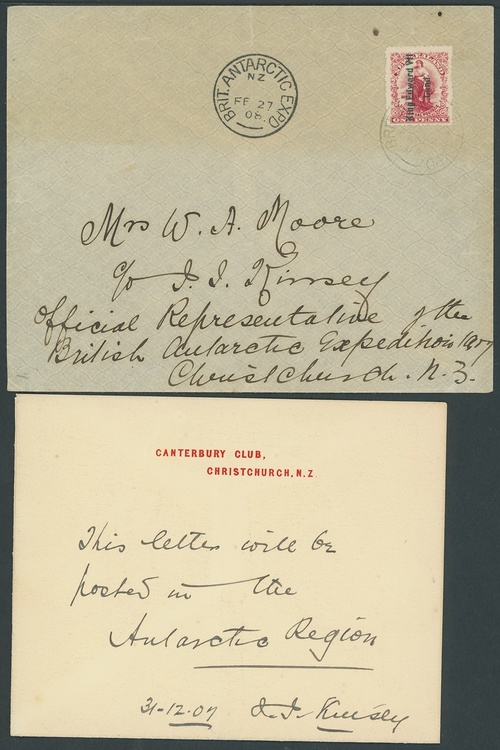 BRIT. ANTARCTIC EXPD.
NZ
FE 27
08.
King Edward VII
Land
ONE PENNY
Mrs W. A. Moore
c/o J. J. Kinsey
Official Representative of the
British Antarctic Expedition 1907
Christchurch. N. Z.
CANTERBURY CLUB,
CHRISTCHURCH, N.Z.
This letter will be
posted in the
Antarctic Region
31-12-07 J. J. Kinsey